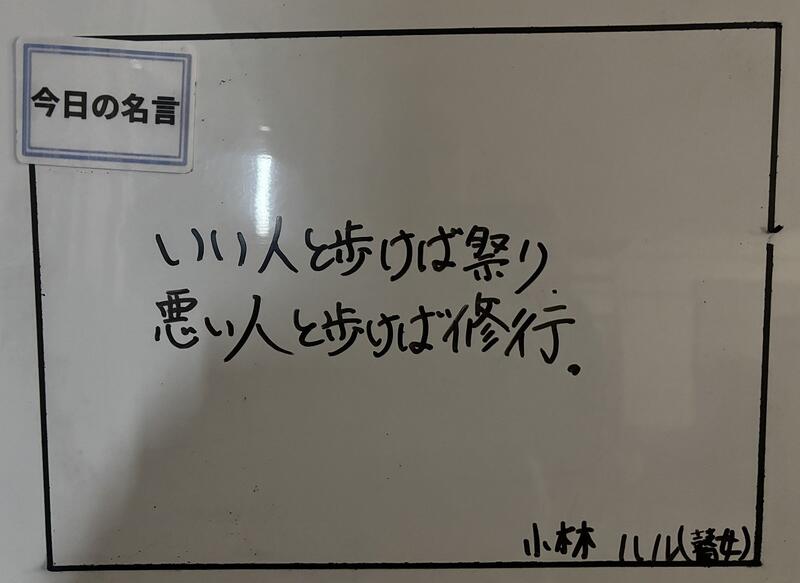 今日の名言
いい人と歩けば祭り
悪い人と歩けば修行.
小林 ハル(瞽女)